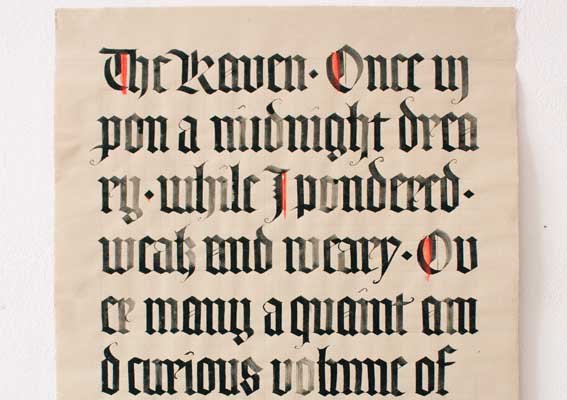 The Raven · Once u
pon a midnight drea
ry · while I pondered ·
weak and weary · Ov
er many a quaint an
d curious volume of